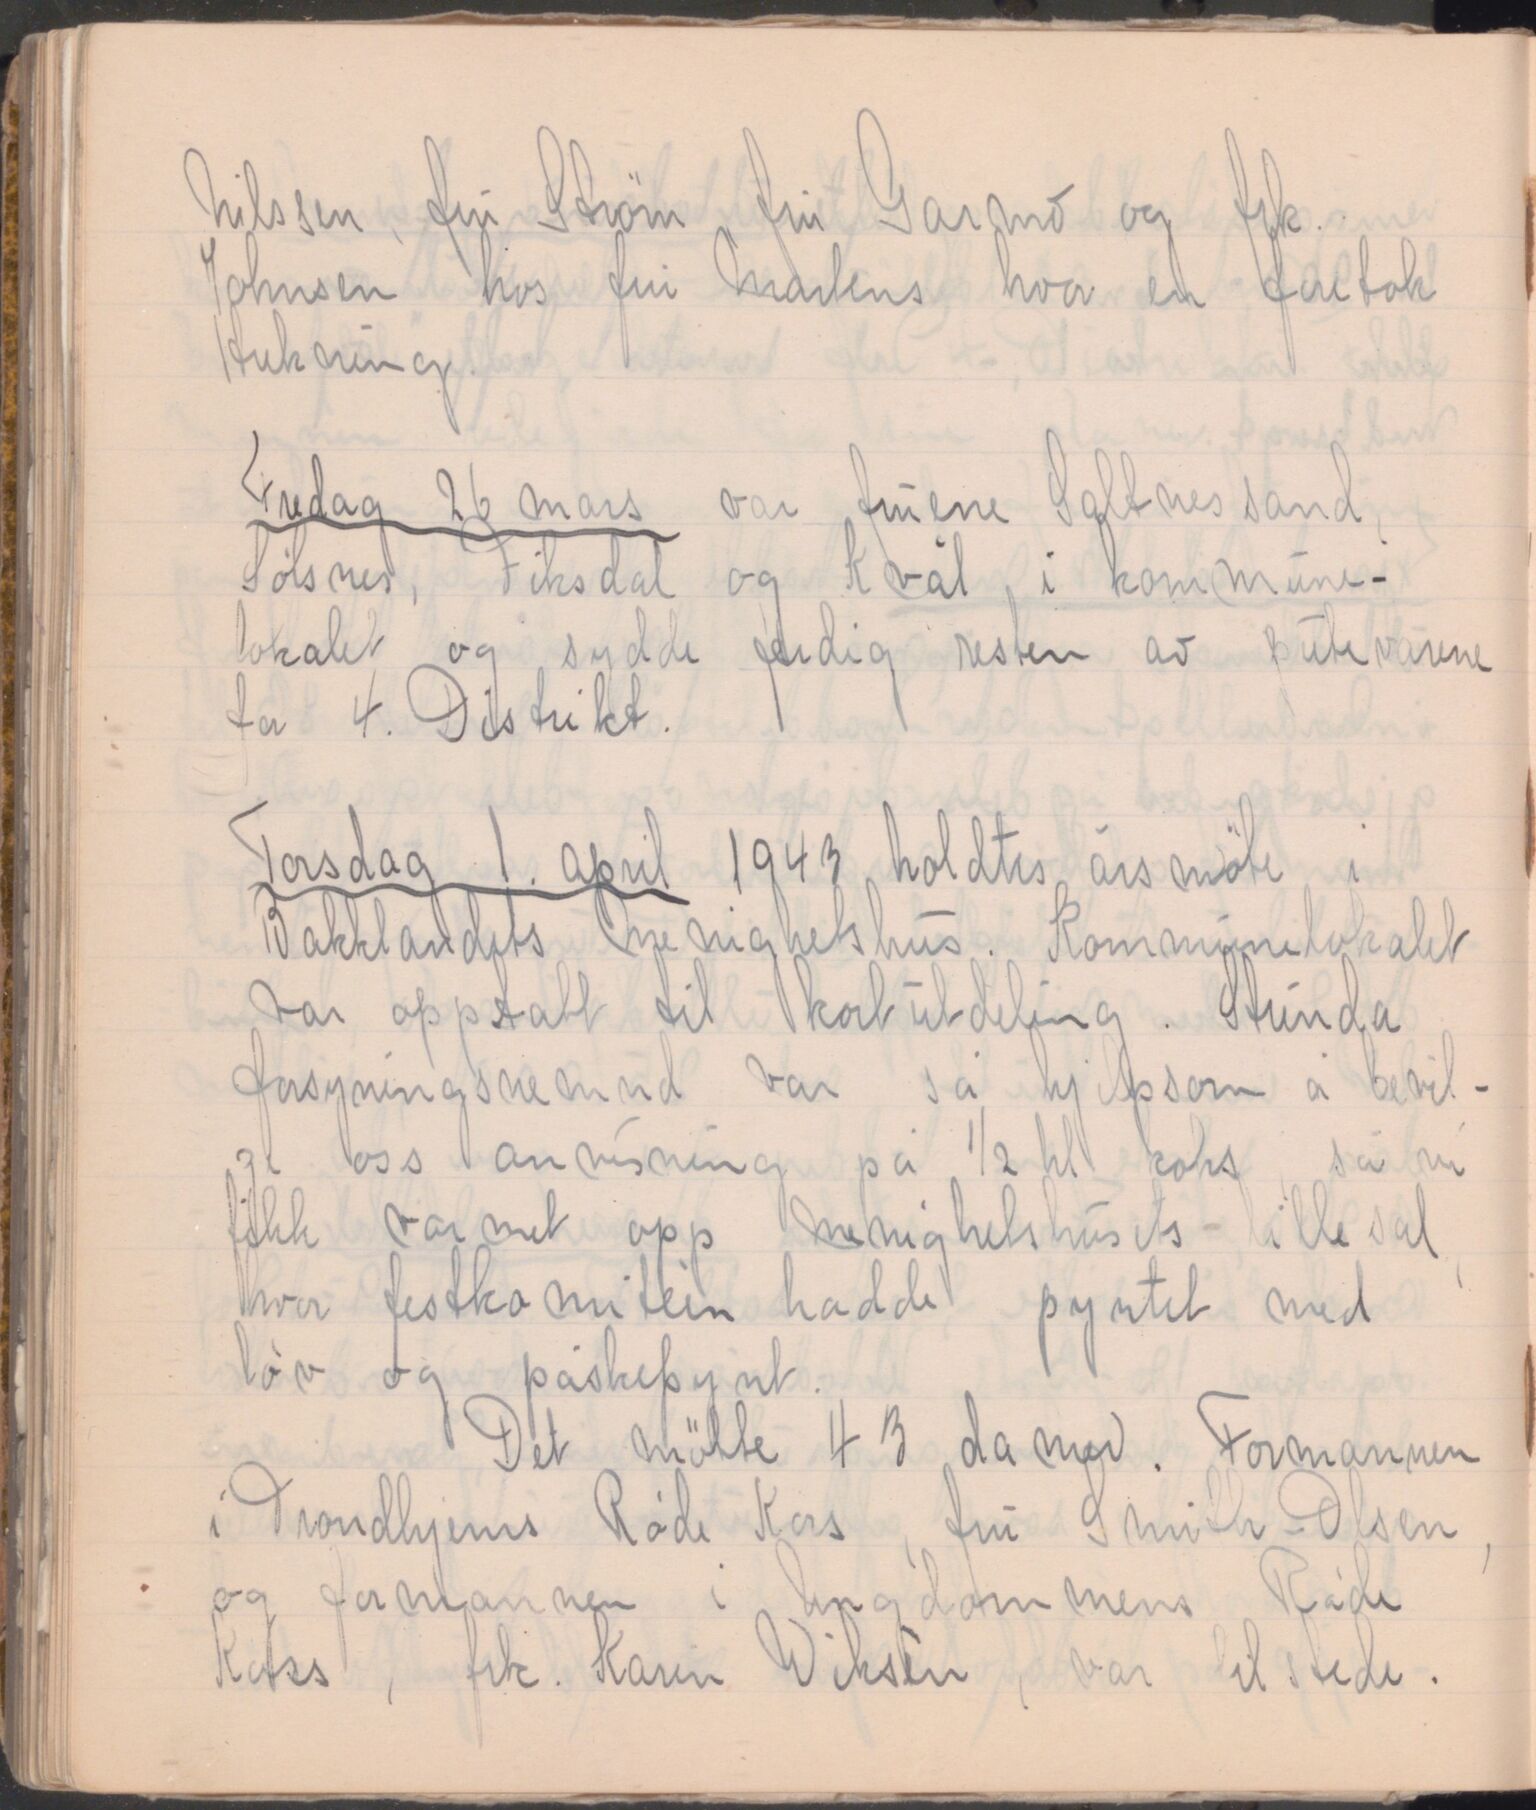 Nilssen, fru Ström fru Garmo og frk.
Johnsen hos fru Martens hvor en foretok
trekning.
Fredag 26 mars var fruene Saltnessand,
Solsnes, Fiksdal og Kvål, i kommune-
lokalet og sydde ferdig resten av putevarene
for 4. Distrikt.
Torsdag 1. april 1943 holdtes årsmöte i
Bakklandets menighetshus. Kommunelokalet
var opptatt til kortutdeling. Strinda
forsyningsnemnd var så hjelpsom å bevil-
ge oss anvisning på 1/2 hl koks, så vi
fikk varmet opp menighetshusets lille sal,
hvor festkomitéen hadde pyntet med
löv og påskepynt.
Det mötte 43 damer. Formannen
i Trondhjems Röde Kors, fru Smith-Olsen,
og formannen i Ungdommens Röde
Kors, frk. Karen Wiksén, var tilstede.